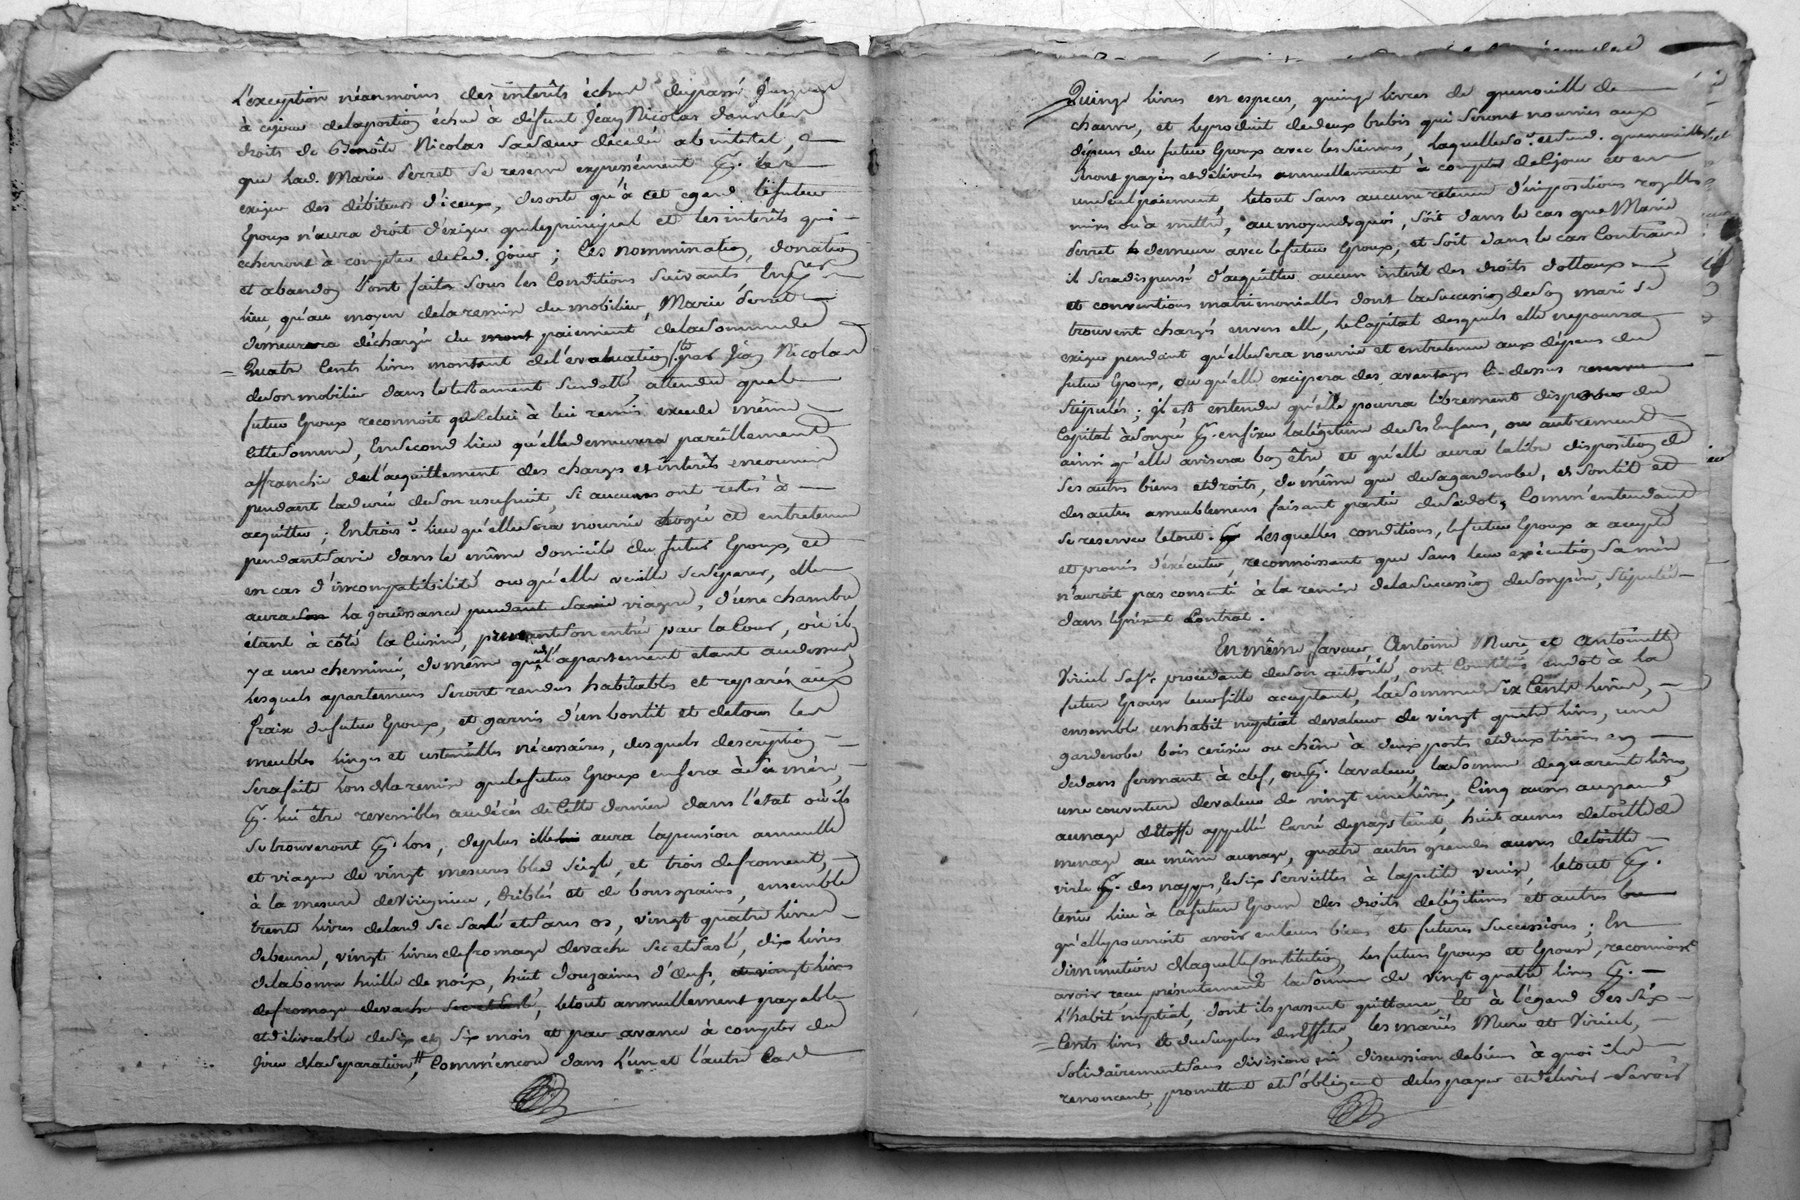 L'exception néanmoins des intérêts échus du passé jusques
à ce jour de la portion échue à défunt Jean Nicolas dans les
droits de Benoîte Nicolas sa sœur décédée ab intestat,
que lad. Marie Perret se reserve expressément
exiger des débiteurs d'iceux, desorte qu'à cet egard le futur
Epoux n'aura droit d'exiger que le principal et les intérêts qui
echerront à compter de ced. jour ; Ces nomination, donation
et abandon sont faits sous les Conditions suivants En per
lieu, qu'au moyen de la remise du mobilier, Marie Perret
demeurera déchargée du paiement de la somme de
Quatre Cents livres montant de l'evaluation fte par Jean Nicolas
de son mobilier dans le testament susdatté, attendu que le
futur Epoux reconnoit que celui à lui remis excede même
cette somme, En second lieu qu'elle demeurera pareillement
affranchie de l'acquittement des charges et intérêts encourus
pendant la durée de son usufruit, si aucuns ont restés à
acquitter ; En trois.e lieu qu'elle sera nourrie logée et entretenue
pendant sa vie dans le même domicile du futur Epoux, et
en cas d'incompatibilité ou qu'elle veuille se séparer, elle
aura la jouissance pendant sa vie viagere, d'une chambre
étant à côté la Cuisine, prenant son entrée par la Cour, où il
y a une cheminée, de même que de l'apartement étant au dessus
lesquels apartemens seront rendus habitables et reparés aux
fraix du futur Epoux, et garnis d'un bon lit et de tous les
meubles linges et ustensilles nécessaires, desquels description
sera faite lors de la remise que le futur Epoux en fera à sa mère,
lui être reversibles au décès de cette derniere dans l'état où ils
se trouveront lors, de plus aura la pension annuelle
et viagere de vingt mesures bled seigle, et trois de froment,
à la mesure de Virignieu, criblés et de bons grains, ensemble
trente livres de lard sec salé et sans os, vingt quatre livres
de beurre, vingt livres de fromage de vache sec et salé, dix livres
de la bonne huille de noix, huit douzaines d'œufs, et vingt livres
de fromage de vache sec et salé, le tout annuellement payable
et délivrable de six en six mois et par avance à compter du
jour de la séparation, Comm'encore dans l'un et l'autre Cas
Quinze livres en especes, quinze livres de quenouille de
chanvre, et le produit de deux brebis qui seront nourries aux
dépens du futur Epoux avec les siennes, laquelle so.e et sud. quenouille
seront payées et délivrées annuellement à compter de ce jour et en
un seul paiement, le tout sans aucune retenue d'impositions royalles
mises ou à mettre, au moyen de quoi, soit dans le cas que Marie
Perret demeure avec le futur Epoux, et soit dans le cas Contraire
il sera dispensé d'acquitter aucun intérêt des droits dottaux
et conventions matrimonialles dont la succession de son mari se
trouvent chargés envers elle, le Capital desquels elle ne pourra
exiger pendant qu'elle sera nourrie et entretenue aux dépens du
futur Epoux, ou qu'elle excipera des avantages ci-dessus
stipulés ; il est entendu qu'elle pourra librement disposer du
Capital à son gré en fixer la légitime de ses Enfans, ou autrement
ainsi qu'elle avisera bon être et qu'elle aura la libre disposition de
ses autres biens et droits, de même que de sa garderobe, et son lit et
des autres ameublemens faisant partie de sa dot, Comm'entendant
se reserver le tout. Lesquelles conditions, le futur Epoux a accepté
et promis d'exécuter, reconnoissant que sans leur exécution sa mère
n'auroit pas consenti à la remise de la succession de son père, stipulée
dans le présent Contrat.
En même faveur, Antoine Muré, et Antoinette
Viriel sa fe. procédant de son autorité, ont Constitué en dot à la
future Epouse leur fille acceptante, la somme six Cents livres,
ensemble un habit nuptial de valeur de vingt quatre livres, une
garderobe bois cerisier ou chêne à deux portes et deux tiroirs en
dedans fermant à clef, ou la valeur, la somme de quarente livres
une couverture de valeur de vingt une livres, Cinq aunes au grand
aunage d'étoffe appellée Carré de pays teint, huit aunes de toille de
menage au même aunage, quatre autres grandes aunes de toille
virée des nappes, et six serviettes à la petite venise, le tout
tenir lieu à la future Epouse des droits de légitime et autres
qu'elle pourroit avoir en leurs biens et futures successions ; En
diminution de laquelle Constitution, les futurs Epoux et Epouse, reconnoiss.t
avoir reçu présentement la somme de vingt quatre livres
l'habit nuptial, dont ils passent quittance, Et à l'égard des six
Cents livres et du surplus des Effets, les mariés Muré et Viriel,
solidairement sans division ni discussion de biens à quoi ils
renoncent, promettent et s'obligent de les payer et délivrer savoir